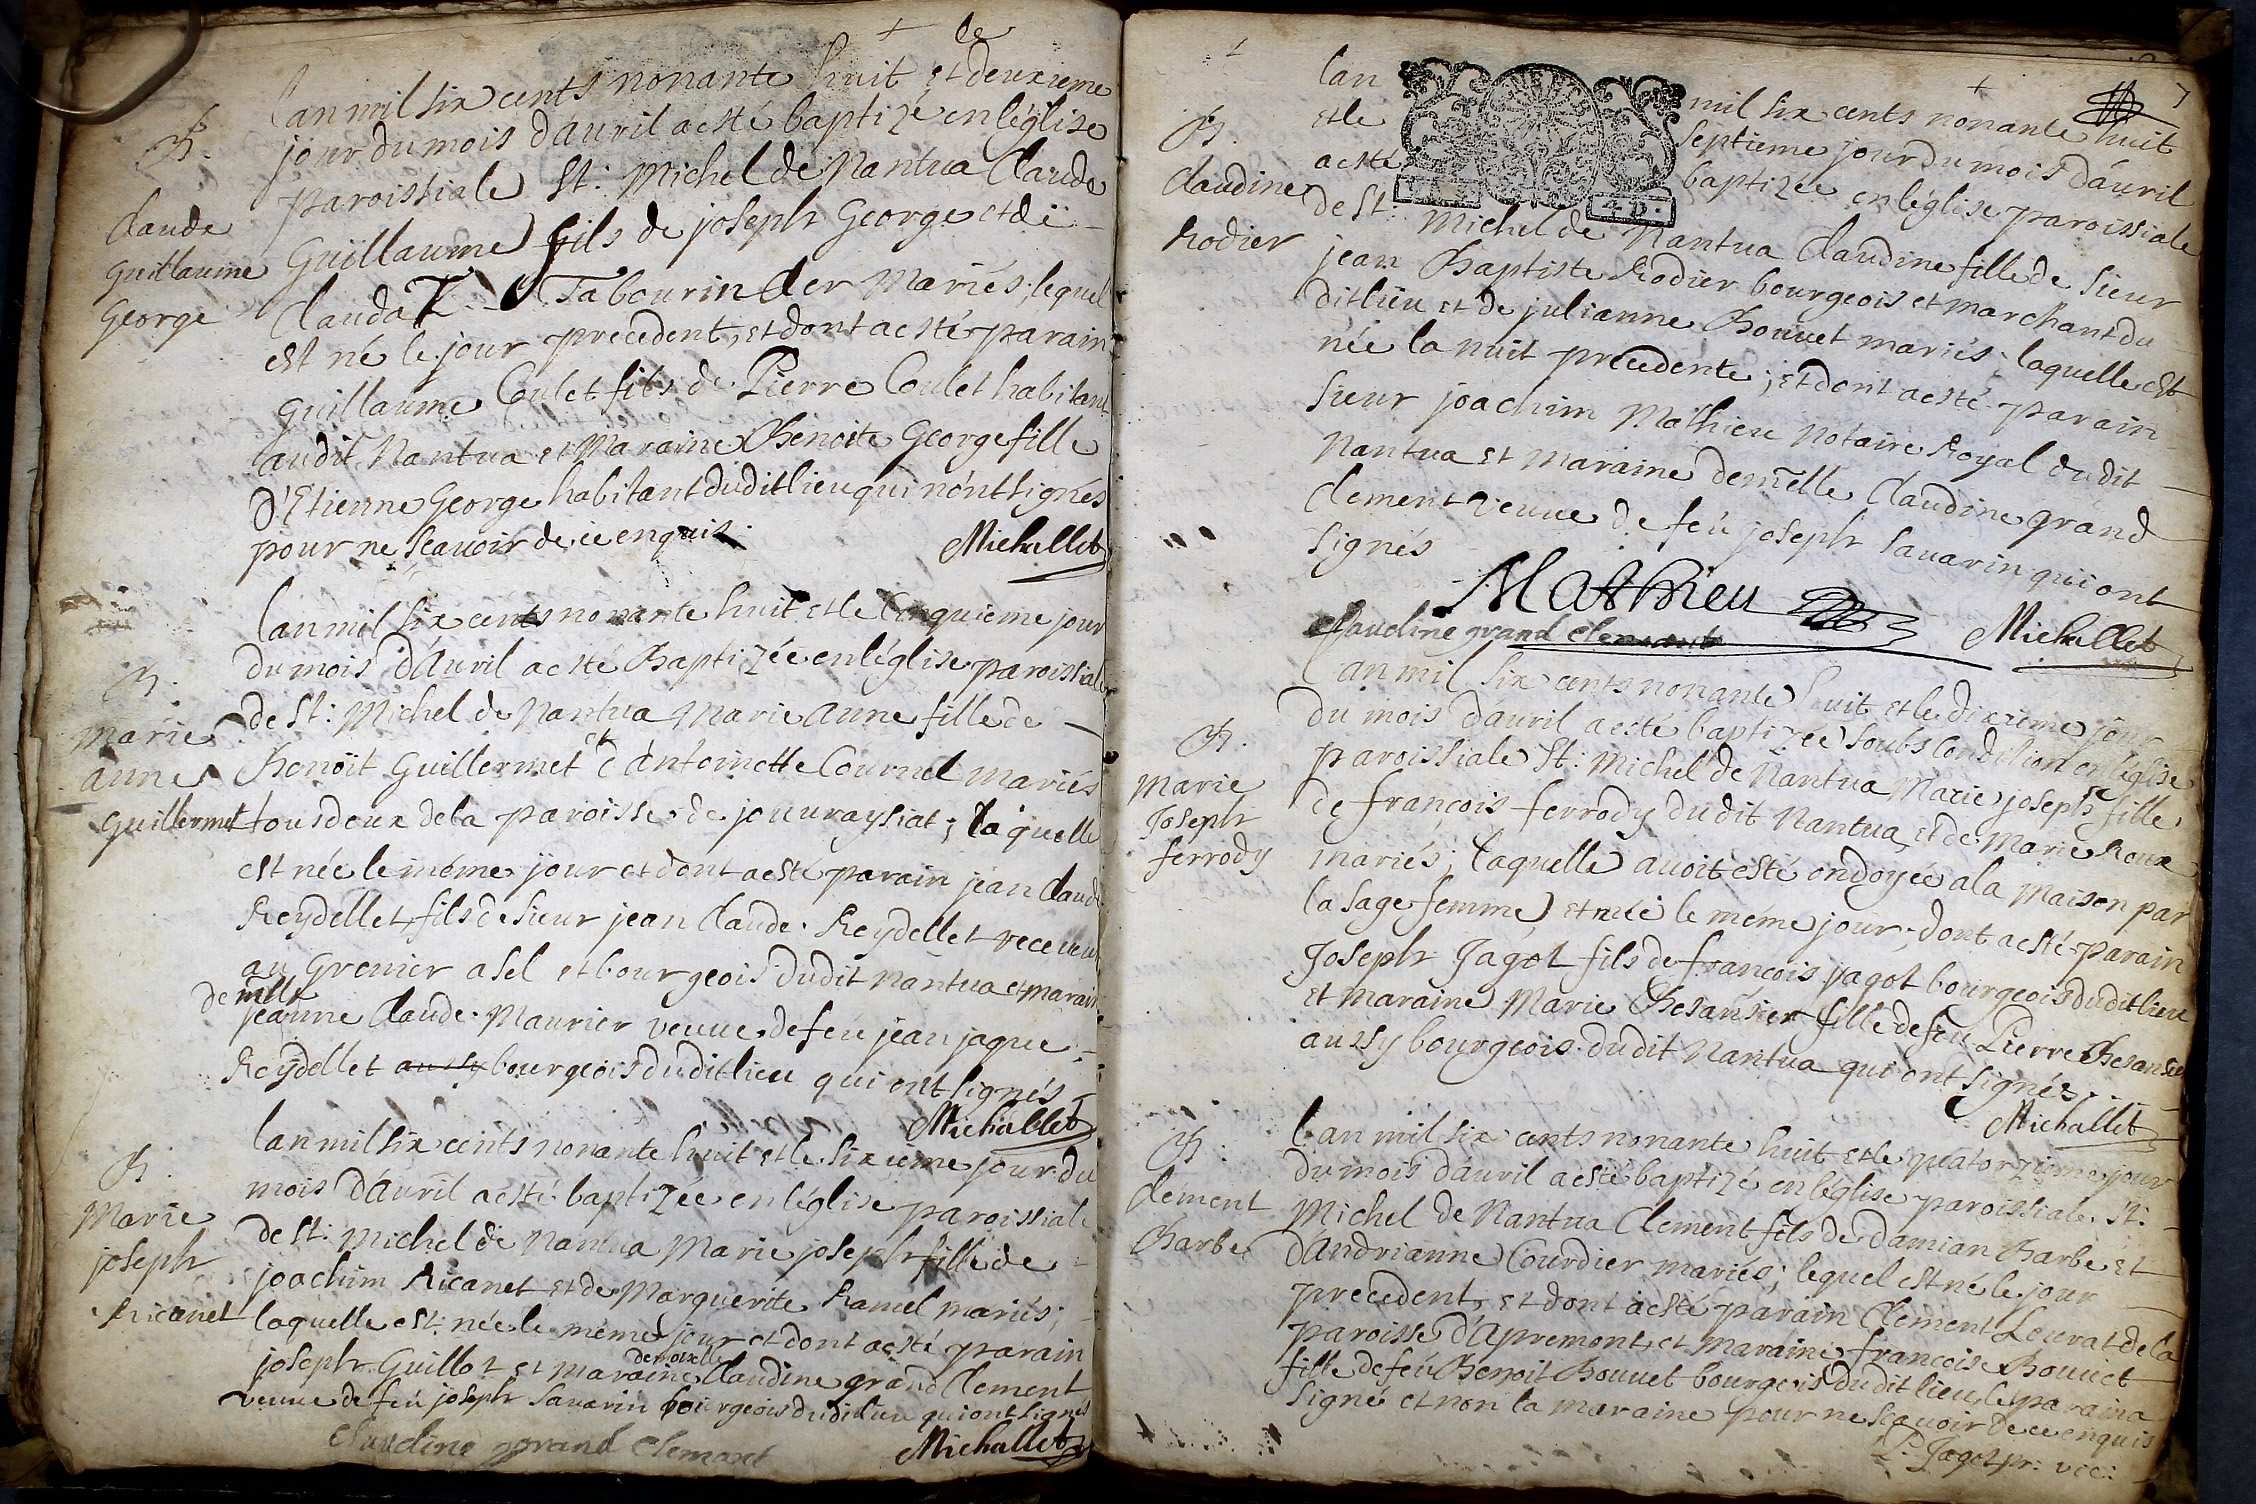 + de
Lan mil six cents nonante huit et deuxieme
B. jour du mois dauril a esté baptizé en léglise
paroissiale St: Michel de Nantua Claude
Claude Guillaume fils de joseph George et de
Guillaume Clauda Tabourin der Mariés; lequel
George est né le jour precedent, et dont a esté parain
Guillaume Coulet fils de Pierre Coulet habitant
audit Nantua et Maraine Benoite George fille
D'Etienne George habitant dudit lieu qui nónt signés
pour ne scauoir de ce enquis.
Michallet
Lan mil six cents nonante huit et le Cinquieme jour
du mois dAuril a esté Baptizée en léglise paroissiale
B. de St: Michel de Nantua Marie Anne fille de
Marie Benoit Guillermet et d'Antoinette Cournel mariés
anne
Guillermet tous deux de la paroisse de jouuraysiat; laquelle
est née le même jour et dont a esté parain jean Claude
Reydellet fils de Sieur jean Claude Reydellet receueur
au Grenier a sel et bourgeois dudit Nantua et maraine
demlle jeanne Claude Maurier veuue de feu jean jaque
Reydellet aussy bourgeois dudit lieu qui ont signés
Michallet
Lan mil six cents nonante huit et le sixieme jour du
B. mois dAuril a esté baptizée en léglise paroissiale
Marie de St: Michel de Nantua Marie joseph fille de
joseph joachim Ricanet et de Marguerite Ramel mariés;
Ricanet laquelle est née le même jour et dont a esté parain
joseph Guillot et maraine demoiselle Claudine grand Clement
veuue de feu joseph Sauarin bourgeois dudit lieu qui ont signés
Claudine grand Clemant Michallet
+ + 7
Lan mil six cents nonante huit
B. et le septieme jour du mois dauril
Claudine a esté baptizée en léglise paroissiale
Rodier de St: Michel de Nantua Claudine fille de Sieur
jean Baptiste Rodier bourgeois et marchant du
dit lieu et de julianne Bouuet mariés; laquelle est
née la nuit precedente; et dont a esté parain
Sieur joachim Mathieu Notaire Royal dudit
Nantua et maraine demelle Claudine grand
Clement veuue de feu joseph Sauarin qui ont
signés
Mathieu
Claudine grand Clemant Michallet
Lan mil six cents nonante huit et le dixieme jour
du mois dauril a esté baptizée soubs Condition en léglise
B. paroissiale St: Michel de Nantua Marie joseph fille
Marie de françois ferrody dudit Nantua et de Marie Roux
Joseph
ferrody mariés; laquelle auoit esté ondoyée a la Maison par
la sage femme et née le même jour; dont a esté parain
Joseph Jagot fils de françois jagot bourgeois dudit lieu
et maraine Marie Besansier fille de feu Pierre Besansier
aussy bourgeois dudit Nantua qui ont signés.
Michallet
B. Lan mil six cents nonante huit et le quatorzieme jour
du mois dauril a esté baptizé en léglise paroissiale St:
Clement Michel de Nantua Clement fils de Damian Barbe et
Barbe dAndrianne Courdier mariés; lequel est né le jour
precedent, et dont a esté parain Clement Leurat de la
paroisse d'Apremont, et maraine francoise Bouuet
fille de feu Benoit Bouuet bourgeois dudit lieu, le parain a
signé et non la maraine pour ne scauoir de ce enquis
P: Jagot pr: vic: